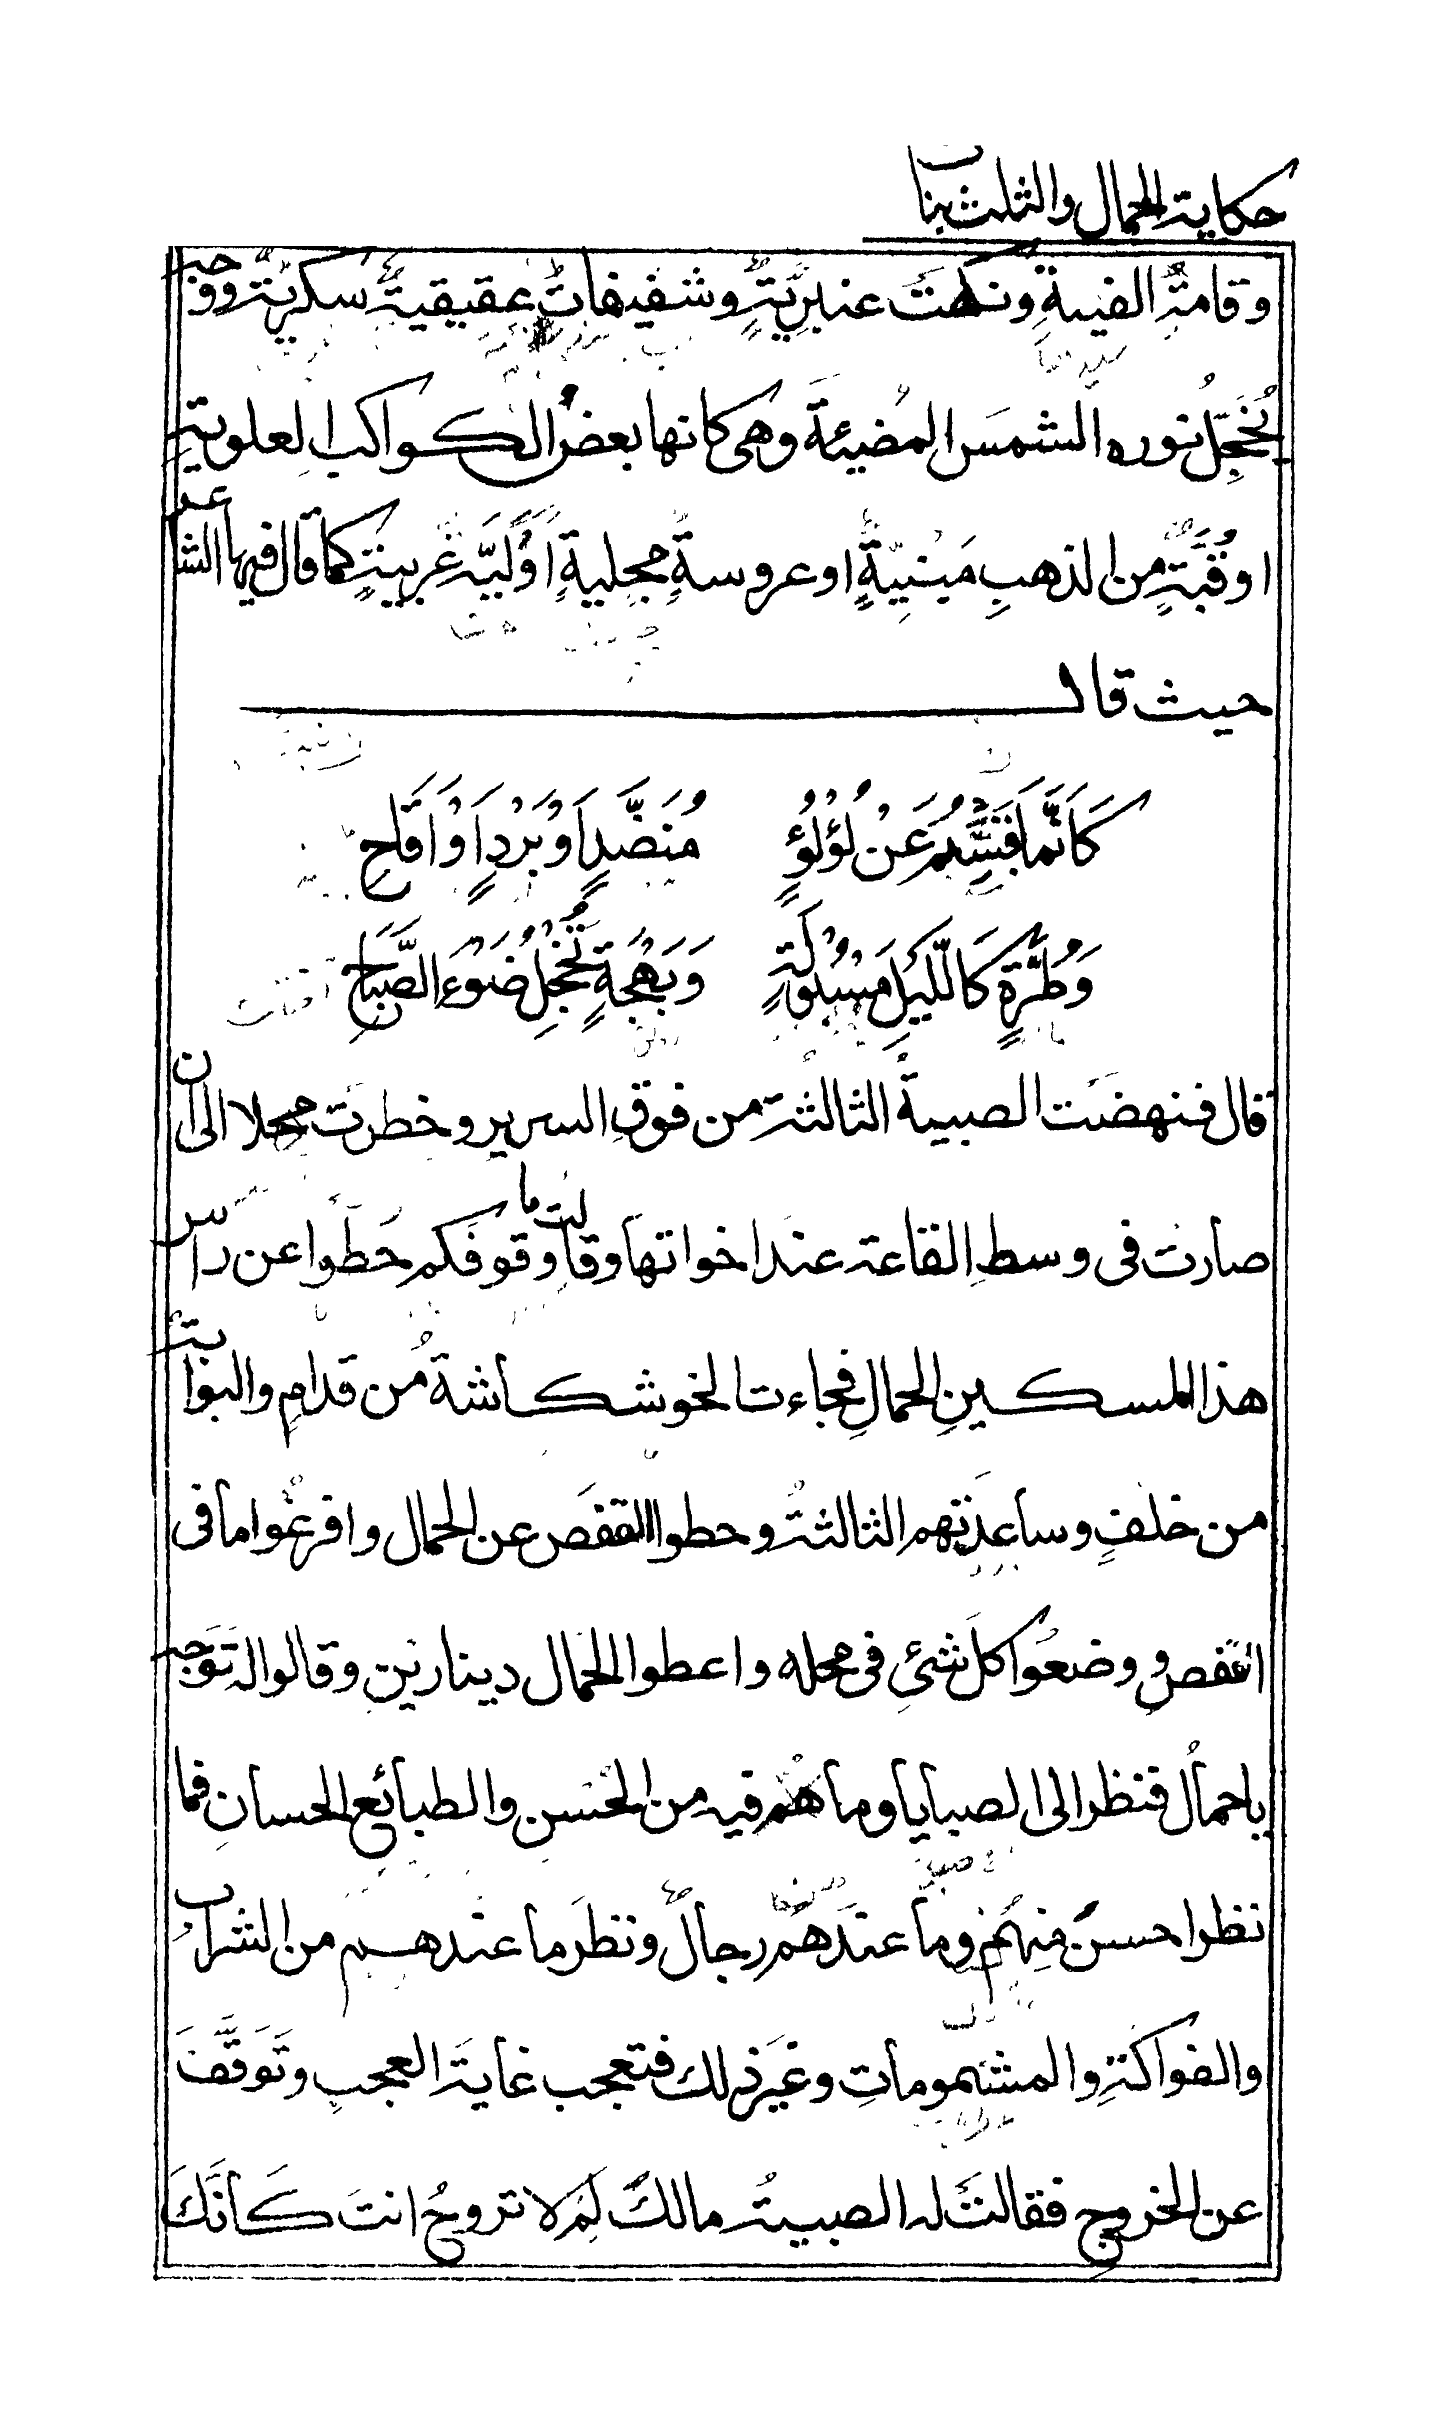 حكاية الحمال والثلث بنات
وقامة الفية ونكهة عنبرية وشفيفات عقيقية سكرية ووجه
يخجل نوره الشمس المضيئة وهى كانها بعض الكواكب العلوية
او قبة من الذهب مبنية او عروسة مجلية او لية غريبة كما قال فيها الشاعر
حيث قال
كَأَنَّمَا تَبَسَّمُ عَنْ لُؤْلُؤٍ مُنَضَّدٍ اَوْ بَرَدٍ اَوْ اَقَاحِ
وَطُرَّةٍ كَاللَّيْلِ مَسْبُولَةٍ وَبَهْجَةٍ تُخْجِلُ ضَوْءَ الصَّبَاحِ
قال فنهضت الصبية الثالثة من فوق السرير وخطرت محجلا الى ان
صارت فى وسط القاعة عند اخواتها وقالت ما وقوفكم حطوا عن راس
هذا المسكين الحمال فجاءت الخوشكاشة من قدام والبوابة
من خلف وساعدتهم الثالثة وحطوا القفص عن الحمال وافرغوا ما فى
القفص ووضعوا كل شئ فى محله واعطوا الحمال دينارين وقالوا له توجه
يا حمال فنظر الى الصبايا وما هم فيه من الحسن والطبائع الحسان فما
نظر احسن منهم وما عندهم رجال ونظر ما عندهم من الشراب
والفواكه والمشمومات وغير ذلك فتعجب غاية العجب وتوقف
عن الخروج فقالت له الصبية مالك لم لا تروح انت كأنك